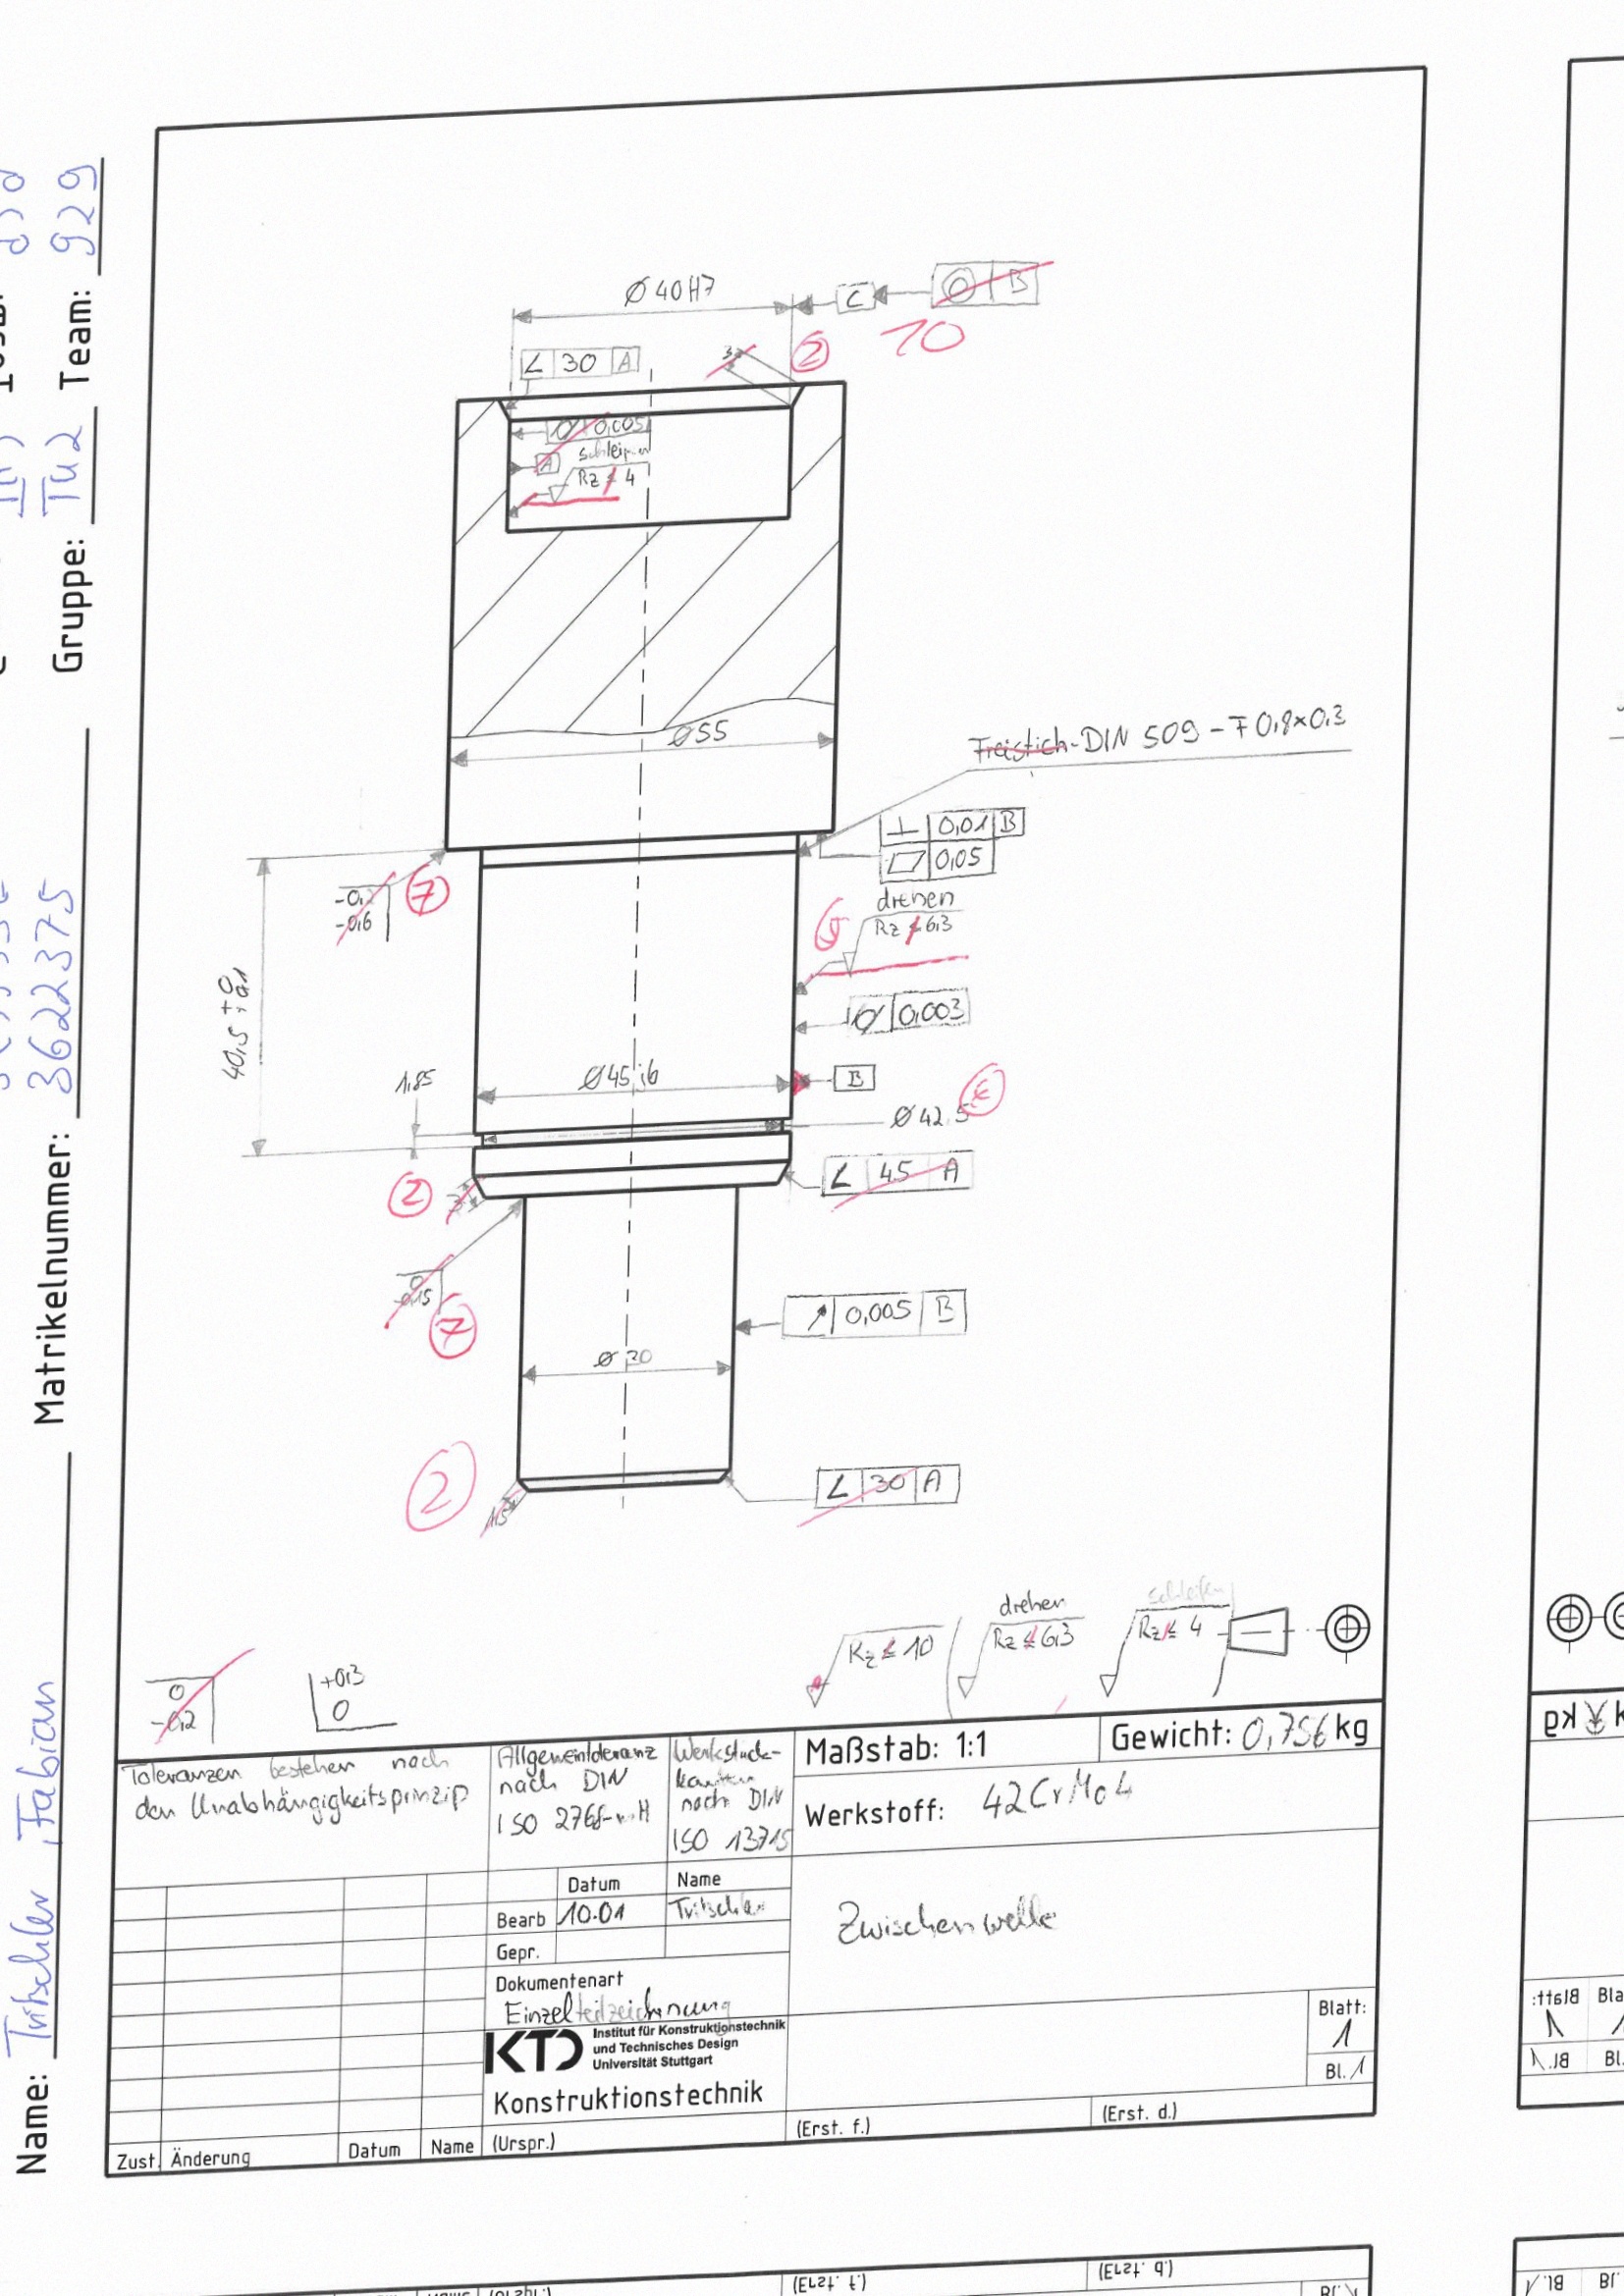 Name: Tritschler, Fabian
Matrikelnummer: 3622375
Gruppe: Tu2 Team: 929
Ø 40 H7
C
◎ B
10
∠ 30 A
3
2
0,005
A schleifen
Rz ≤ 4
Ø 55
Freistich-DIN 509 - F 0,8×0,3
⊥ 0,01 B
▱ 0,05
-0,2
-0,6
7
drehen
Rz ≤ 6,3
5
⌭ 0,003
40,5 +0 -0,1
1,85
Ø 45 j6
B
Ø 42,5
∠ 45 A
2
3
0
-0,15
7
↗ 0,005 B
Ø 30
2
1,5
∠ 30 A
drehen schleifen
Rz ≤ 10 ( Rz ≤ 6,3 Rz ≤ 4
0
-0,2
+0,3
0
Toleranzen bestehen nach
den Unabhängigkeitsprinzip
Allgemeintoleranz
nach DIN
ISO 2768-mH
Werkstück-
kanten
nach DIN
ISO 13715
Maßstab: 1:1
Gewicht: 0,756 kg
Werkstoff: 42CrMo4
Datum Name
Bearb 10.01 Tritschler
Gepr.
Zwischenwelle
Dokumentenart
Einzelteilzeichnung
KTD Institut für Konstruktionstechnik
und Technisches Design
Universität Stuttgart
Konstruktionstechnik
Blatt:
1
Bl. 1
Zust. Änderung Datum Name (Urspr.) (Erst. f.) (Erst. d.)